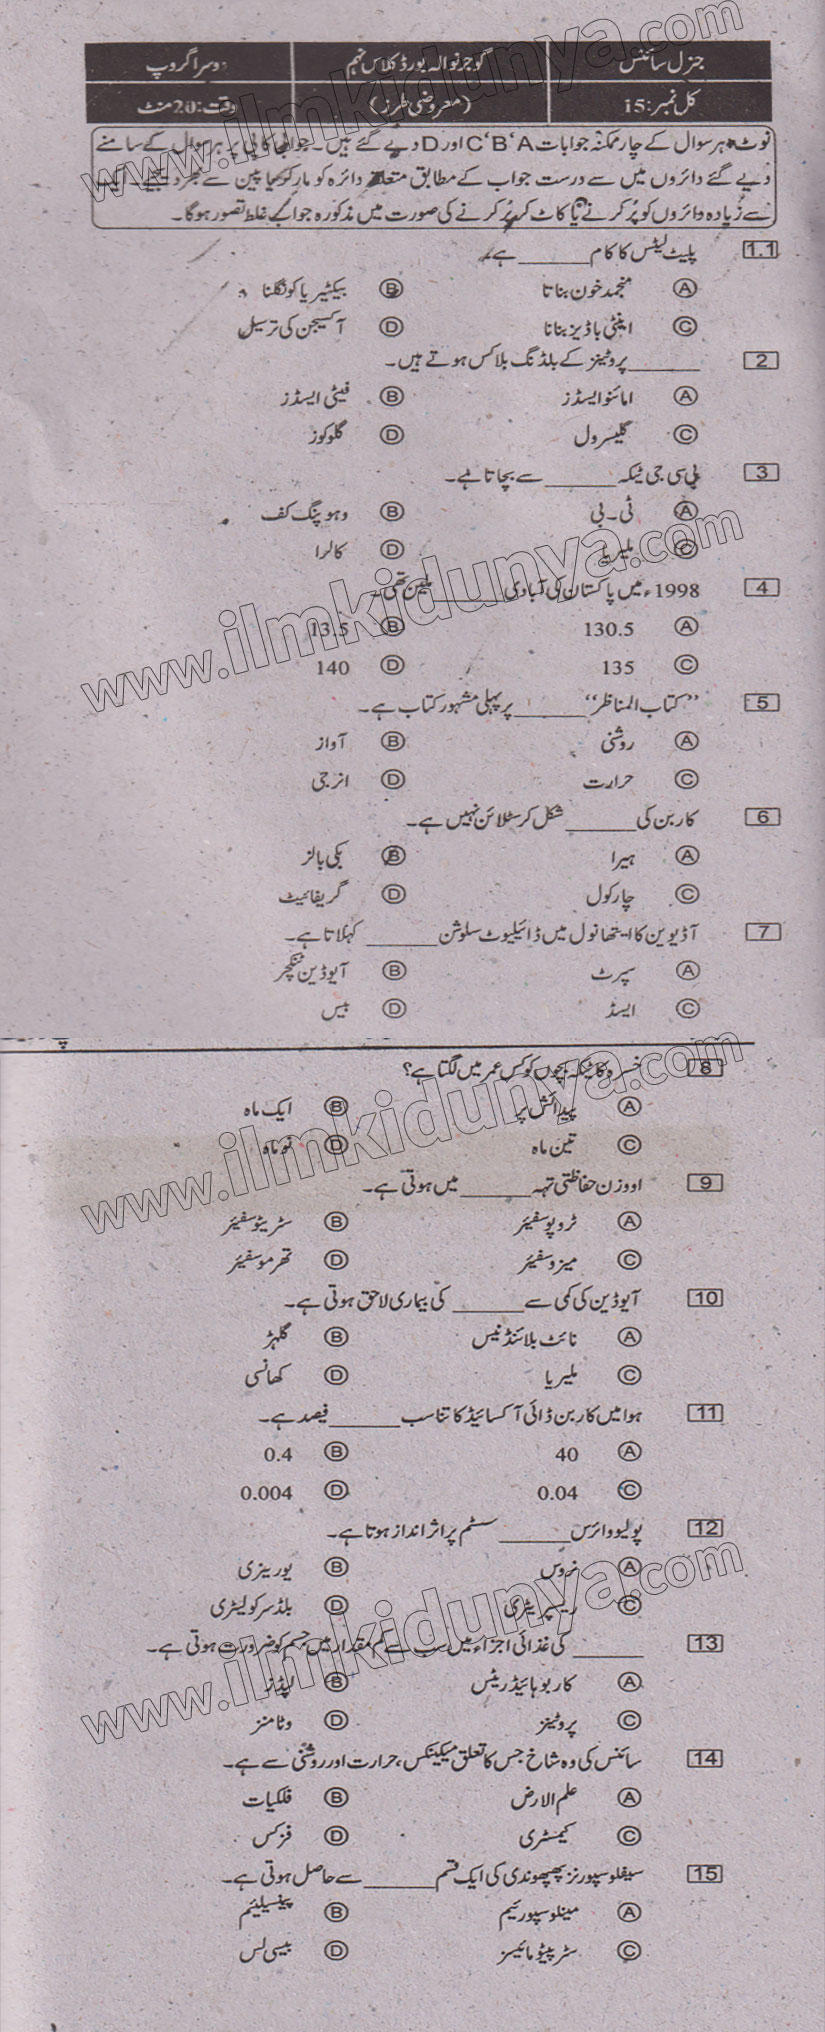 جنرل سائنس گوجرنوالہ بورڈ کلاس نہم دوسرا گروپ
کل نمبر: 15 (معروضی طرز) وقت: 20 منٹ
نوٹ: ہر سوال کے چار ممکنہ جوابات A ‘B ‘C اور D دیے گئے ہیں۔ جوابی کاپی پر ہر سوال کے سامنے
دیے گئے دائروں میں سے درست جواب کے مطابق متعلقہ دائرہ کو مارکر یا پین سے بھر دیجیے۔ ایک
سے زیادہ دائروں کو پُر کرنے یا کاٹ کر پُر کرنے کی صورت میں مذکورہ جواب غلط تصور ہوگا۔
1.1 پلیٹ لیٹس کا کام ______ ہے۔
A منجمد خون بناتا B بیکٹیریا کو نگلنا
C اینٹی باڈیز بنانا D آکسیجن کی ترسیل
2 ______ پروٹینز کے بلڈنگ بلاکس ہوتے ہیں۔
A امائنو ایسڈز B فیٹی ایسڈز
C گلیسرول D گلوکوز
3 بی سی جی ٹیکہ ______ سے بچاتا ہے۔
A ٹی۔بی B وہوپنگ کف
C ملیریا D کالرا
4 1998ء میں پاکستان کی آبادی ______ ملین تھی۔
A 130.5 B 13.5
C 135 D 140
5 ’’کتاب المناظر‘‘ ______ پر پہلی مشہور کتاب ہے۔
A روشنی B آواز
C حرارت D انرجی
6 کاربن کی ______ شکل کرسٹلائن نہیں ہے۔
A ہیرا B بکی بالز
C چارکول D گریفائیٹ
7 آڈیوین کا ایتھانول میں ڈائیلیوٹ سلوشن ______ کہلاتا ہے۔
A سپرٹ B آیوڈین ٹنکچر
C ایسڈ D بیس
8 خسرہ کا ٹیکہ بچوں کو کس عمر میں لگتا ہے؟
A پیدائش پر B ایک ماہ
C تین ماہ D نو ماہ
9 اوزون حفاظتی تہہ ______ میں ہوتی ہے۔
A ٹروپوسفیئر B سٹریٹوسفیئر
C میزوسفیئر D تھرموسفیئر
10 آیوڈین کی کمی سے ______ کی بیماری لاحق ہوتی ہے۔
A نائٹ بلائنڈنیس B گلہڑ
C ملیریا D کھانسی
11 ہوا میں کاربن ڈائی آکسائیڈ کا تناسب ______ فیصد ہے۔
A 40 B 0.4
C 0.04 D 0.004
12 پولیو وائرس ______ سسٹم پر اثر انداز ہوتا ہے۔
A نروس B یورینری
C ریسپریٹری D بلڈ سرکولیٹری
13 ______ کی غذائی اجزاء میں سب سے کم مقدار میں جسم کو ضرورت ہوتی ہے۔
A کاربوہائیڈریٹس B لپڈز
C پروٹینز D وٹامنز
14 سائنس کی وہ شاخ جس کا تعلق میکینکس، حرارت اور روشنی سے ہے۔
A علم الارض B فلکیات
C کیمسٹری D فزکس
15 سیفلوسپورنز پھپھوندی کی ایک قسم ______ سے حاصل ہوتی ہے۔
A سیفلوسپورئیم B پینسیلیئم
C سٹرپٹومائیسز D بیسی لس
www.ilmkidunya.com
www.ilmkidunya.com
www.ilmkidunya.com
www.ilmkidunya.com